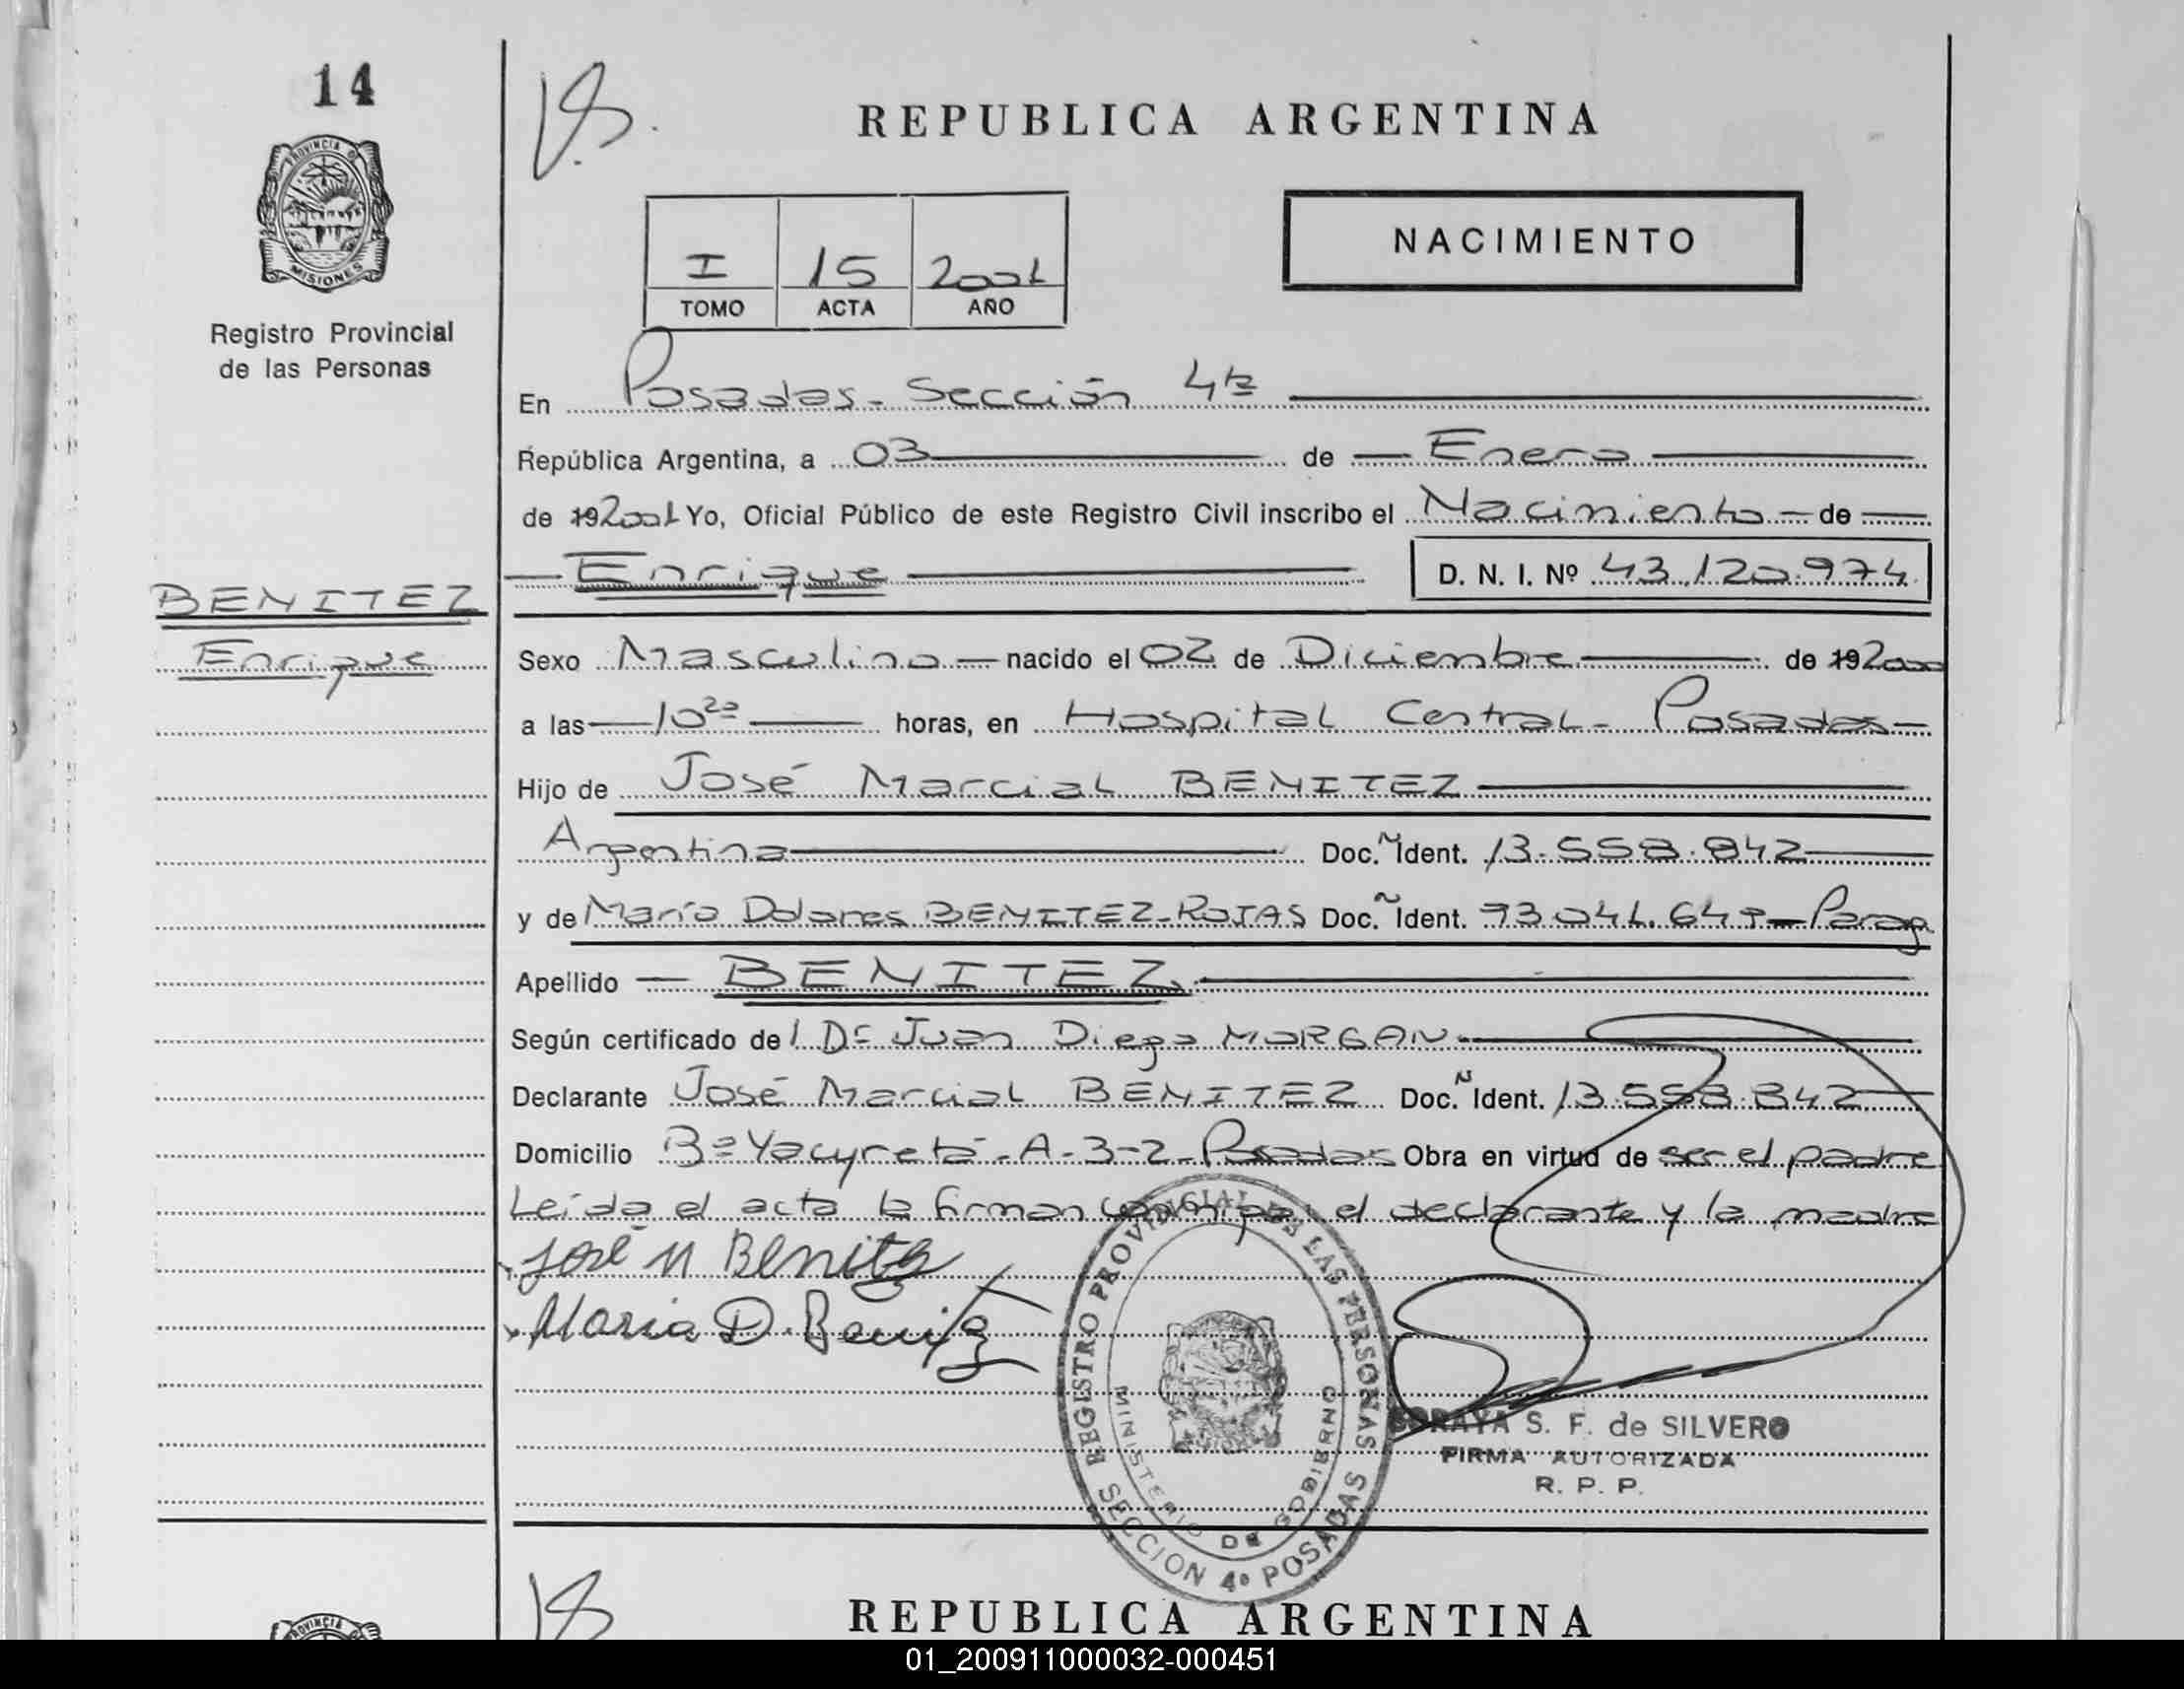 14
PROVINCIA DE
MISIONES
Registro Provincial
de las Personas
BENITEZ
Enrique
REPUBLICA ARGENTINA
I 15 2001
TOMO ACTA AÑO
NACIMIENTO
En Posadas - Sección 4ta
República Argentina, a 03 de Enero
de 192001 Yo, Oficial Público de este Registro Civil inscribo el Nacimiento - de
Enrique D. N. I. Nº 43.120.974
Sexo Masculino - nacido el 02 de Diciembre de 192000
a las 10 20 horas, en Hospital Central - Posadas -
Hijo de José Marcial BENITEZ
Argentina Doc. Ident. 13.558.842
y de María Dolores BENITEZ-ROJAS Doc. Ident. Parag
Apellido BENITEZ
Según certificado de l Dr Juan Diego MORGAN
Declarante José Marcial BENITEZ Doc. Ident. 13.558.842
Domicilio Bº Yacyretá - A-3-2 - Posadas Obra en virtud de ser el padre
Leída el acta la firman conmigo el declarante y la madre
José M Benitez
Maria D. Benitez
REGISTRO PROVINCIAL DE LAS PERSONAS
MINISTERIO DE GOBIERNO
SECCION 4º POSADAS
SORAYA S. F. de SILVERO
FIRMA AUTORIZADA
R. P. P.
PROVINCIA
REPUBLICA ARGENTINA
01_200911000032-000451